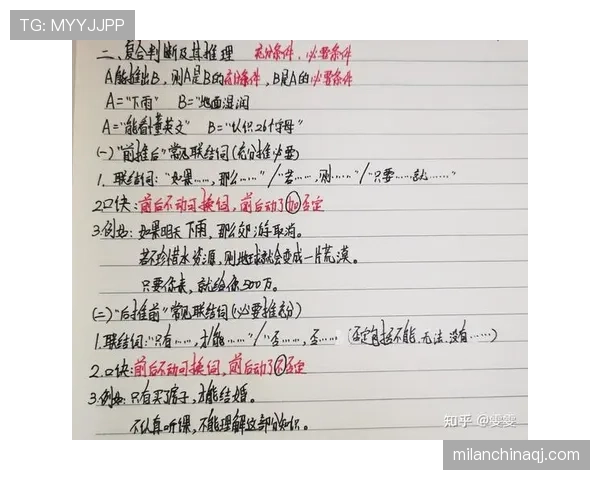 TG: MYYJJPP
二、复合判断及其推理 充分条件,必要条件
A能推出B,则A是B的充分条件,B是A的必要条件
A="下雨" B="地面湿润"
A="能看懂英文" B="认识26个字母"
(一)"前推后"常见联结词(充分推必要)
1. 联结词:"如果……,那么……"/"若……,则……"/"只要……就……"
2.口诀:前后不动可换词,前后动了加否定
3.例如:如果明天下雨,那么郊游取消。
若不珍惜水资源,则地球就会变成一片荒漠。
只要你来,就给你500万。
(二)"后推前"常见联结词(必要推充分)
1.联结词:"只有……,才能……"/"否……,否……(否定包括不能、无法、没有……)
2.口诀:前后不动可换词,前后动了不否定
3.例如:只有买了房子,才能结婚。
不认真听课,不能理解这部分知识。
知乎 @雯雯
milanchinaqj.com